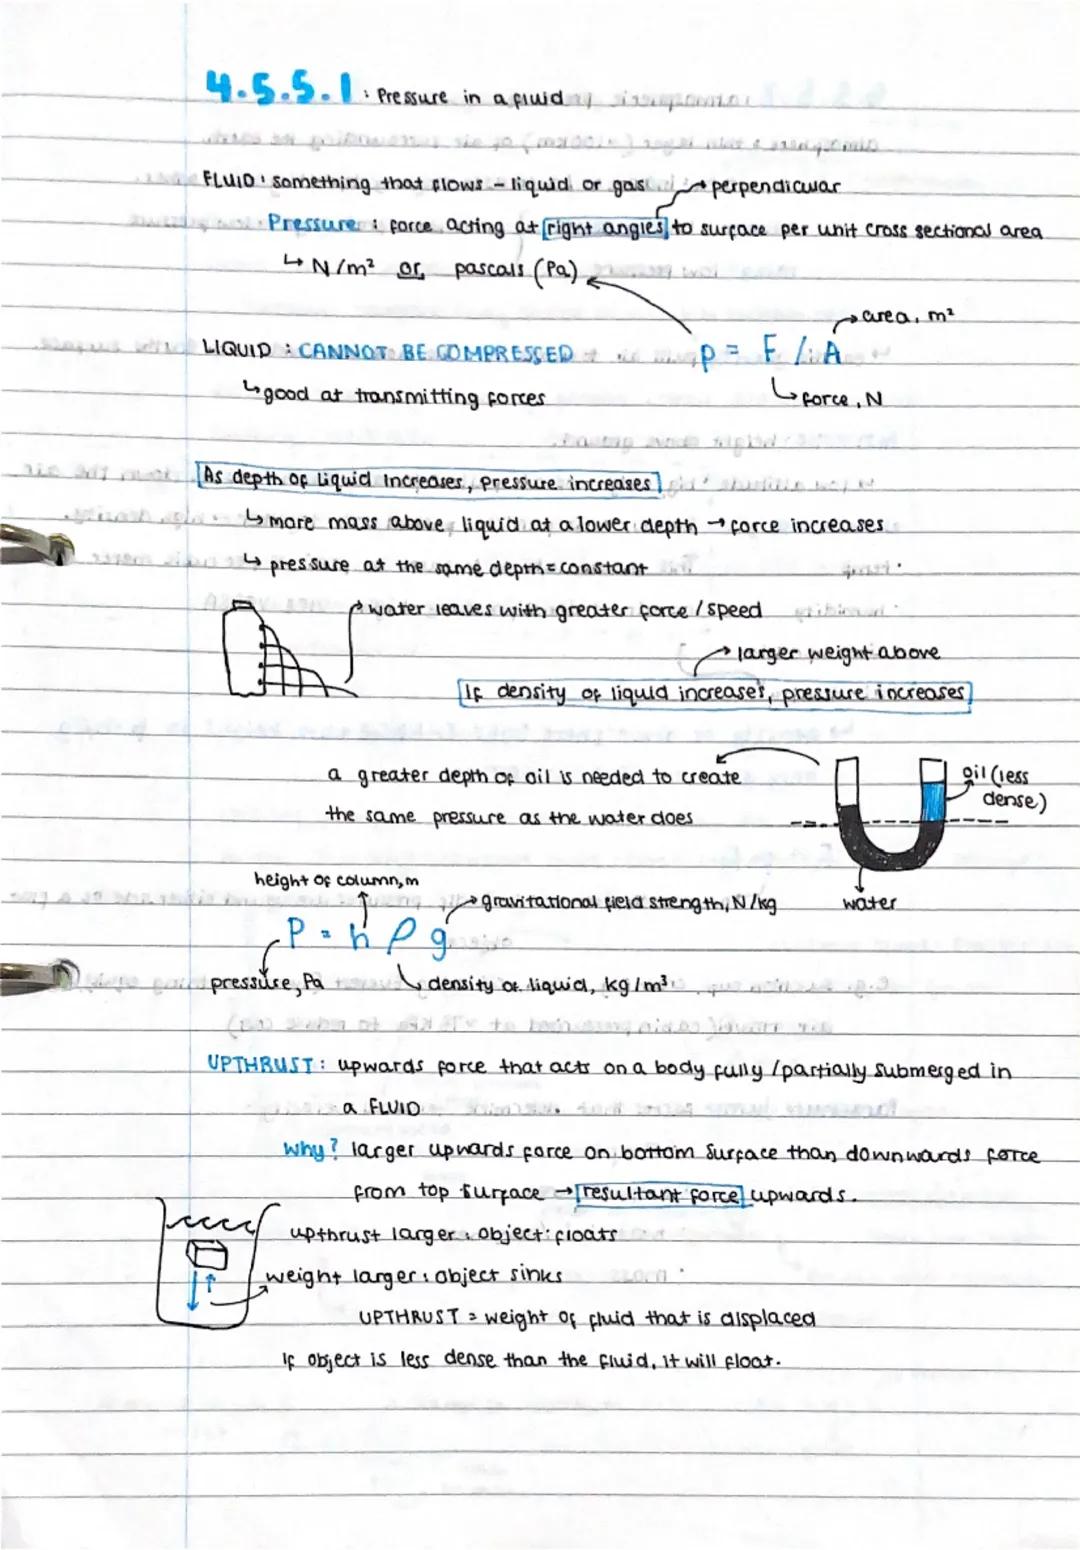 4.5.5.1 : Pressure in a fluid
FLUID : something that flows - liquid or gas
→ perpendicular
Pressure : force acting at right angles to surface per unit cross sectional area
↳ N/m² or pascals (Pa)
→ area, m²
LIQUID : CANNOT BE COMPRESSED
p = F / A
↳ good at transmitting forces
↳ force, N
As depth of liquid increases, pressure increases
↳ more mass above liquid at a lower depth → force increases
↳ pressure at the same depth = constant
→ water leaves with greater force / speed
→ larger weight above
If density of liquid increases, pressure increases
a greater depth of oil is needed to create
the same pressure as the water does
oil (less
dense)
water
height of column, m
→ gravitational field strength, N/kg
P = h ρ g
pressure, Pa
↳ density of liquid, kg/m³
UPTHRUST : upwards force that acts on a body fully / partially submerged in
a FLUID
Why? larger upwards force on bottom surface than downwards force
from top surface → resultant force upwards.
upthrust larger : object floats
weight larger : object sinks
UPTHRUST = weight of fluid that is displaced
If object is less dense than the fluid, it will float.